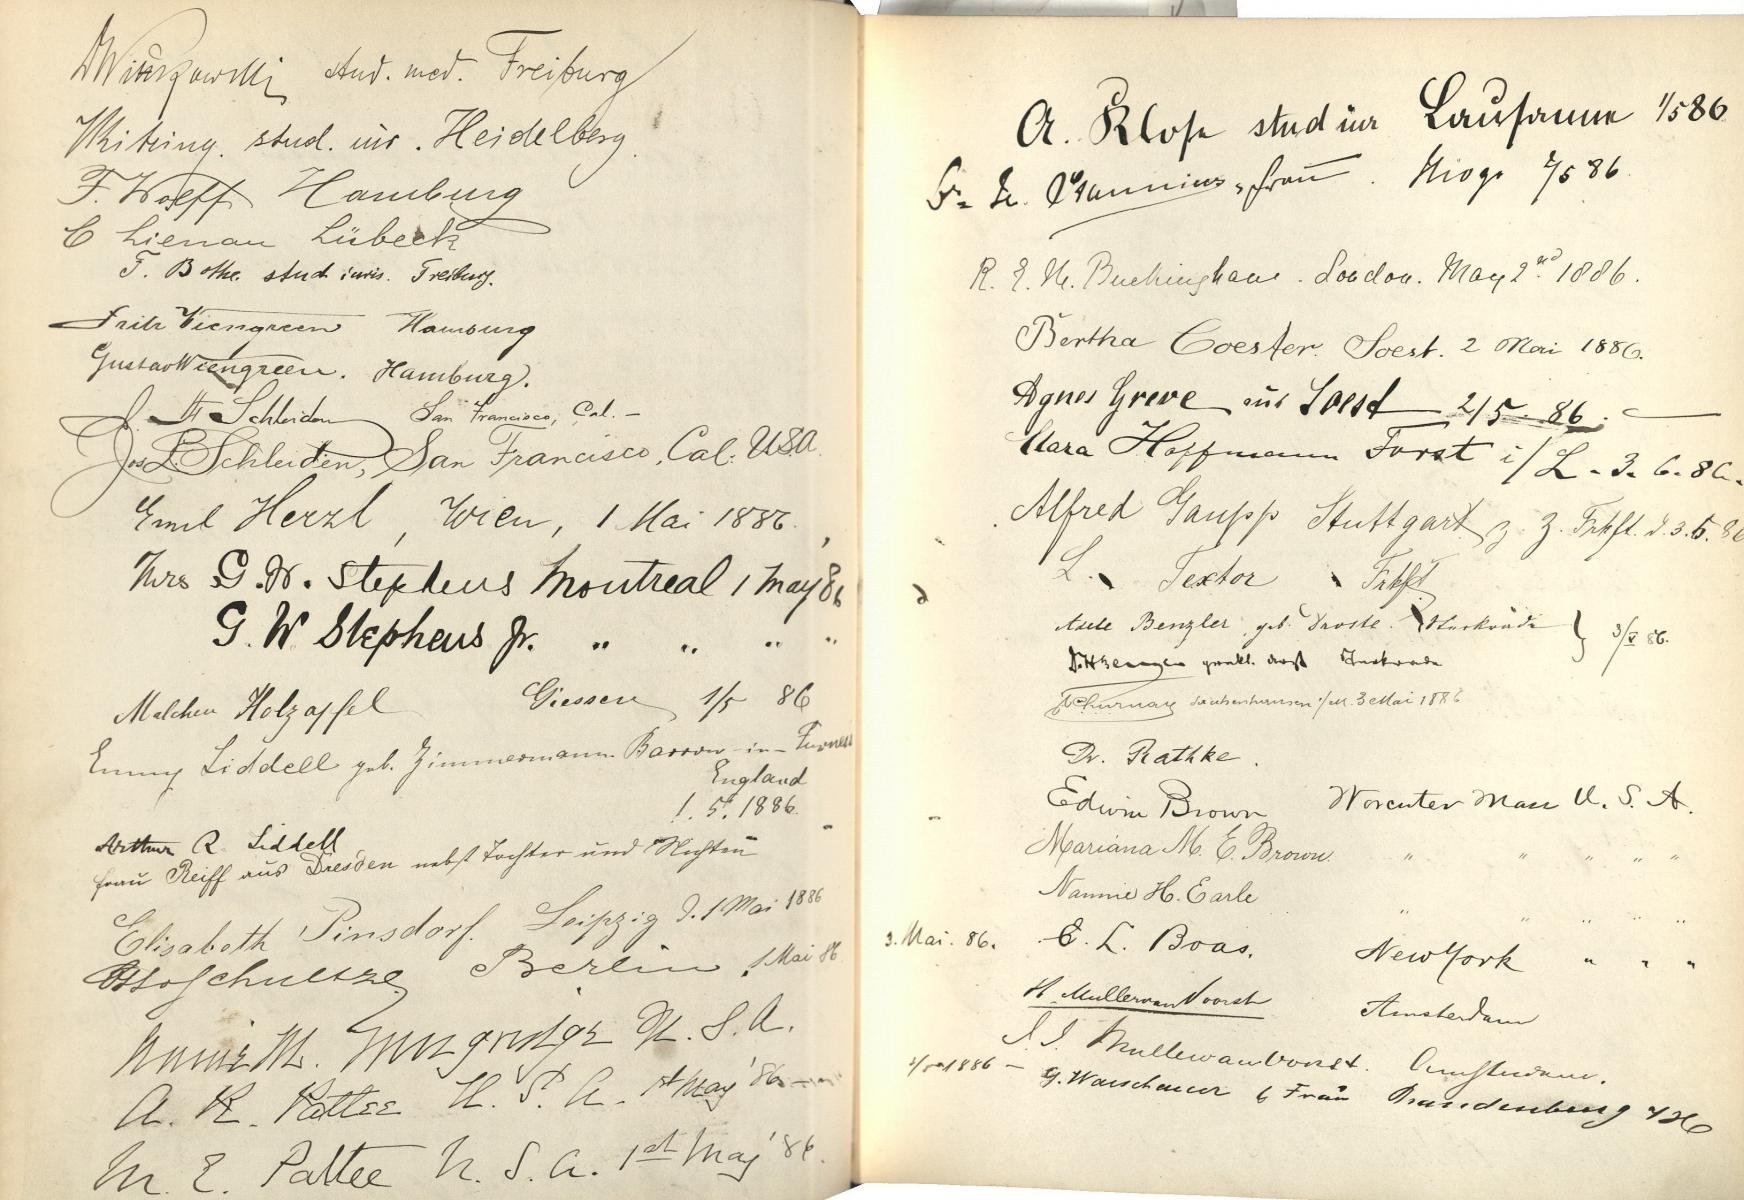 stud. med. Freiburg
stud. iur. Heidelberg
F. Wolff Hamburg
C Lienau Lübeck
F. Bothe. stud. iuris. Freiburg.
Fritz Viengreen Hamburg
Gustav Viengreen. Hamburg.
J. H Schleiden San Francisco, Cal. –
Jos L. Schleiden, San Francisco, Cal. USA
Emil Herzl, Wien, 1 Mai 1886
Mrs G. W. Stephens Montreal 1 May 86
G. W Stephens Jr. " " " "
Malchen Holzapfel Giessen 1/5 86
Emmy Liddell geb. Zimmermann Barrow-in-Furness
England
1. 5. 1886.
Arthur R. Liddell
Frau Reiff aus Dresden nebst Tochter und Nichten
Elisabeth Pinsdorf. Leipzig d. 1 Mai 1886
Otto Schultze Berlin, 1 Mai 86
M. U. S. A.
A. K. Pattee U. S. A. 1st May '86
M. E. Pattee U. S. A. 1st May '86.
A. Klose stud iur Lausanne 1/5 86
Frau. 2/5 86.
R. E. Buckingham. London. May 2nd 1886.
Bertha Coester. Soest. 2 Mai 1886.
Agnes Greve aus Soest 2/5. 86.
Clara Hoffmann Forst i/L. 3. 6. 86.
Alfred Gaupp Stuttgart z. Z. Frkft. d. 3. 5. 86
L. Textor Frkft
Adele Benzler geb. Droste. Sterkrade } 3/V 86.
Sterkrade
Sachsenhausen a/M. 3 Mai 1886
Dr. Rathke.
Edwin Brown Worcester Mass U. S. A.
Mariana M. E. Brown. " " " " "
Nannie H. Earle " " " " "
3. Mai. 86. E. L. Boas. New York " " "
H. Muller van Voorst Amsterdam
Muller van Voorst. Amsterdam.
1886 – G. Warschauer & Frau Brandenburg a/H